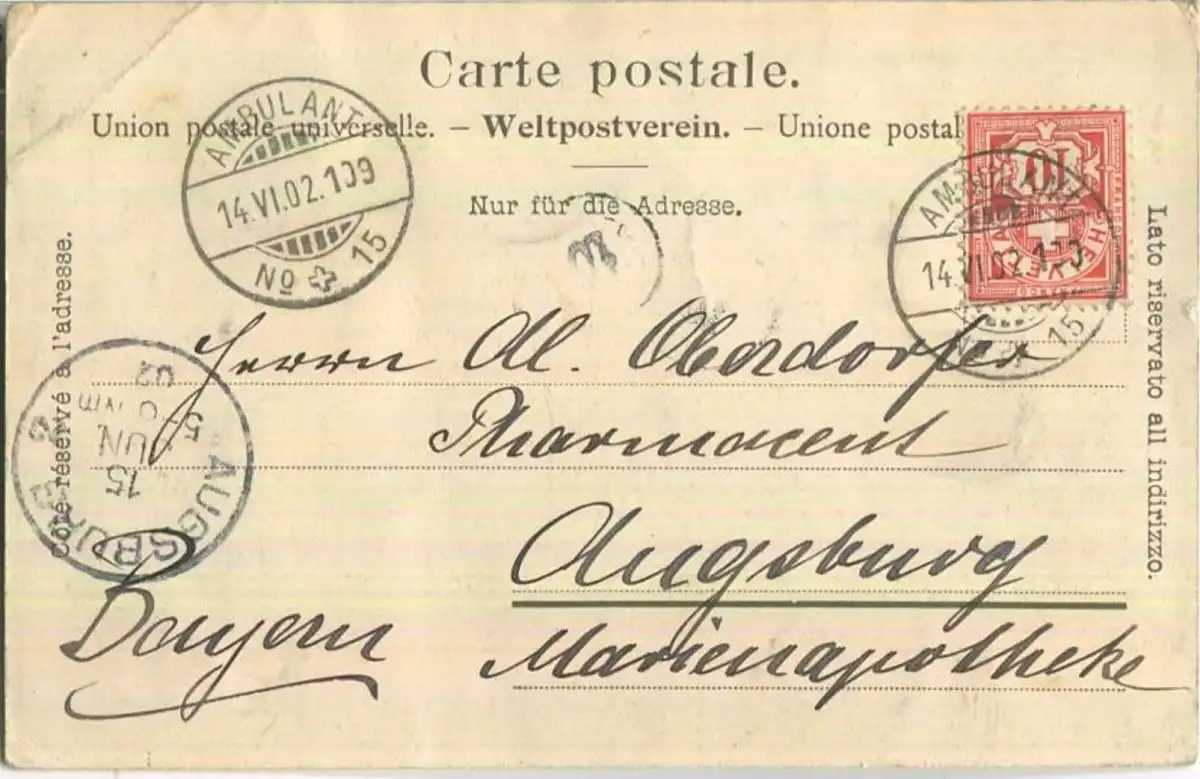 Carte postale.
Union postale universelle. – Weltpostverein. – Unione postal
Nur für die Adresse.
AMBULANT
14.VI.02.109
No 15
10
HELVETIA
AMBULANT
14.VI.02.109
No 15
Côté réservé à l'adresse.
Lato riservato all indirizzo.
Herrn Al. Oberdorfer
Pharmaceut
Augsburg
Marienapotheke
Bayern
AUGSBURG
15
JUN
02